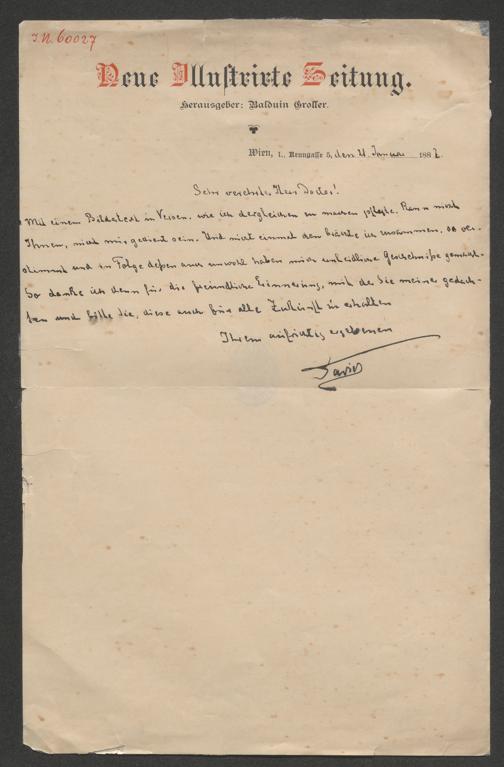 I.N. 60027
Neue Illustrirte Zeitung.
Herausgeber: Balduin Groller.
Wien, I., Renngasse 5, den 21. Januar 188
Sehr verehrter Herr Doctor!
Mit einem Bildertext in Versen, wie ich dergleichen zu machen pflegte, kann nicht
Ihnen, nicht mir gedient sein. Und nicht einmal den brächte ich zusammen, so
stimmt und in Folge deßen auch unwohl haben mich unleidliche gemacht.
So danke ich denn für die freundliche Erinnerung, mit der Sie meiner gedach-
ten und bitte Sie, diese auch für alle Zukunft zu erhalten
Ihrem aufrichtig ergebenen